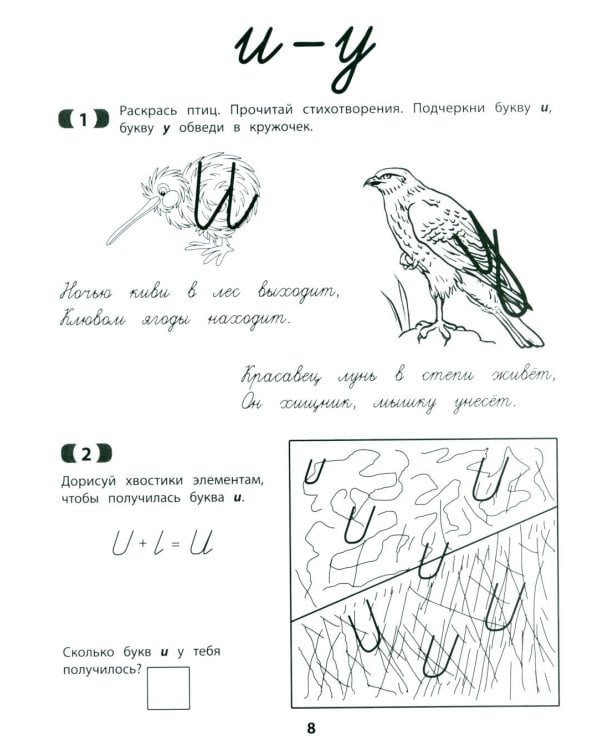 и – у
1
Раскрась птиц. Прочитай стихотворения. Подчеркни букву и,
букву у обведи в кружочек.
И
У
Ночью киви в лес выходит,
Клювом ягоды находит.
Красавец лунь в степи живёт,
Он хищник, мышку унесёт.
2
Дорисуй хвостики элементам,
чтобы получилась буква и.
Сколько букв и у тебя
получилось?
8